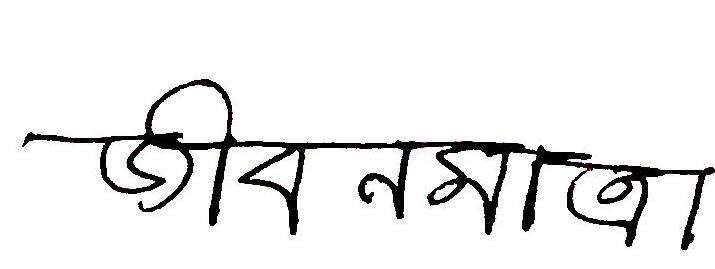 জীবনযাত্রা